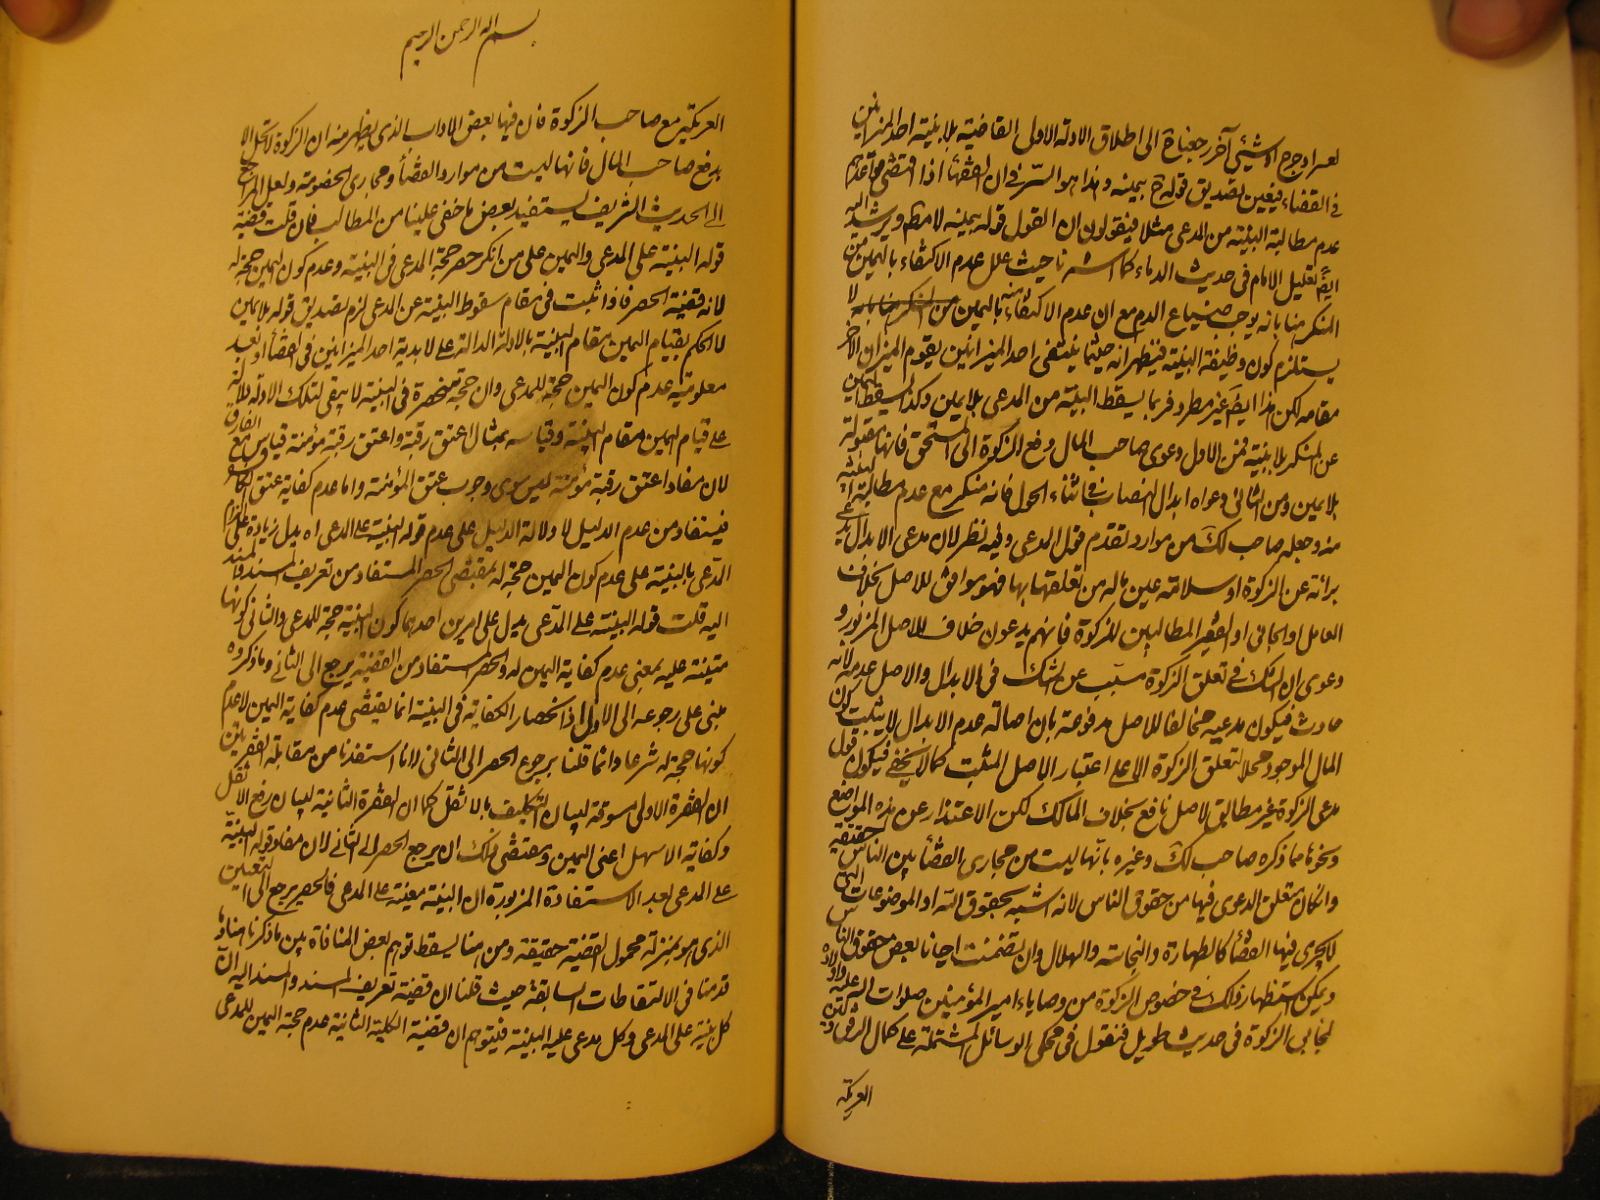 لعسر او حرج او شيئ آخر رجعنا ح الى اطلاق الادلة الاولى القاضية بلابدية احد الميزانين
فى القضاء فيعين تصديق قوله ح بيمينه وهذا هو السر فى ان الفقهاء اذا اقتضى قواعدهم
عدم مطالبة البينة من المدعى مثلا فيقولون ان القول قوله بيمينه لا مطم ويرشد اليه
ايضً تعليل الامام فى حديث الدماء كما اشرنا حيث علل عدم الاكتفاء باليمين من
المنكر هنا بانه يوجب ضياع الدم مع ان عدم الاكتفاء منه باليمين لا
يستلزم كون وظيفة البينة فيظهر انه حيثما ينتفى احد الميزانين يقوم الميزان الآخر
مقامه لكن هذا ايضً غير مطرد فربما يسقط البينة من المدعى بلا يمين وكذا يسقط اليمين
عن المنكر بلا بينة فمن الاول دعوى صاحب المال دفع الزكوة الى المستحق فانها مقبولة
بلا يمين ومن الثانى دعواه ابدال النصاب فى اثناء الحول فانه منكر مع عدم مطالبة البينة
منه وجعله صاحب لك من موارد تقدم قول المدعى وفيه نظر لان مدعى الابدال يدعى
برائة عن الزكوة او سلامة عين ماله من تعلقها بها فهو موافق للاصل بخلاف
العامل او الجابى او الفقير المطالبين للزكوة فانهم يدعون خلاف للاصل المزبور و
دعوى ان الشك فى تعلق الزكوة مسبب عن الشك فى الابدال والاصل عدمه لانه
حادث فيكون مدعيه مخالفا للاصل مدفوعة بان اصالة عدم الابدال لا يثبت كون
المال الموجود محلا لتعلق الزكوة الا على اعتبار الاصل المثبت كما لا يخفى فيكون قول
مدعى الزكوة غير مطابق لاصل نافع بخلاف المالك لكن الاعتذار عن هذه المواضع
ونحوها مما ذكره صاحب لك وغيره بانها ليست من مجارى القضاء بين الناس حقيقة
وانكان متعلق الدعوى فيها من حقوق الناس لانه اشبه بحقوق الله او الموضوعات التى
لا يجرى فيها القضاء كالطهارة والنجاسة والهلال وان تضمنت احيانا بعض حقوق الناس
ويمكن استظهار ذلك فى خصوص الزكوة من وصايا امير المؤمنين صلوات الله عليه واولاده
لجابى الزكوة فى حديث طويل فنقول فى محكى الوسائل المشتملة على كمال الرفق ولين
العريكة
بسم الله الرحمن الرحيم
العريكة مع صاحب الزكوة فان فيها بعض الاداب الذى يظهر منه ان الزكوة لا تحل الا
بدفع صاحب المال فانها ليست من موارد القضاء ومجارى الخصومة ولعل المراجع
الى الحديث الشريف يستفيد بعض ما خفى علينا من المطالب فان قلت قضية
قوله البينة على المدعى واليمين على من انكر حصر حجة المدعى فى البينة وعدم كون اليمين حجة له
لانه قضية الحصر فاذا ثبت فى مقام سقوط البينة عن المدعى لزم تصديق قوله بلا يمين
لا الحكم بقيام اليمين مقام البينة بالادلة الدالة على لابدية احد الميزانين فى القضاء او بعد
معلومية عدم كون اليمين حجة للمدعى وان حجة منحصرة فى البينة لا يبقى لتلك الادلة دلالة
على قيام اليمين مقام البينة وقياسه بمثال اعتق رقبة واعتق رقبة مؤمنة قياس مع الفارق
لان مفاد اعتق رقبة مؤمنة ليس سوى وجوب عتق المؤمنة واما عدم كفاية عتق الكافر
فيستفاد من عدم الدليل لا دلالة الدليل على عدم قوله البينة على المدعى اه يدل زيادة على الزام
المدعى بالبينة على عدم كون اليمين حجة له بمقتضى الحصر المستفاد من تعريف المسند والمسند
اليه قلت قوله البينة على المدعى يدل على امرين احدهما كون البينة حجة للمدعى والثانى كونها
متعينة عليه بمعنى عدم كفاية اليمين له والحصر المستفاد من القضية يرجع الى الثانى وما ذكروه
مبنى على رجوعه الى الاول اذ انحصار الكفاية فى البينة انما يقتضى عدم كفاية اليمين لا عدم
كونها حجة له شرعا وانما قلنا برجوع الحصر الى الثانى لانا استفدنا من مقابلة الفقرتين
ان الفقرة الاولى مسوقة لبيان التكليف بالاثقل كما ان الفقرة الثانية لبيان رفع الاثقل
وكفاية الاسهل اعنى اليمين ومقتضى ذلك ان يرجع الحصر الى الثانى لان مفاد قوله البينة
على المدعى بعد الاستفادة المزبورة ان البينة معينة على المدعى فالحصر يرجع الى التعيين
الذى هو بمنزلة محمول القضية حقيقة ومن هنا يسقط توهم بعض المنافاة بين ما ذكرنا هنا وما
قدمنا فى الالتقاطات السابقة حيث قلنا ان قضية تعريف المسند والمسند اليه ان
كل بينة على المدعى وكل مدعى عليه البينة فيتوهم ان قضية الكلية الثانية عدم حجية اليمين للمدعى